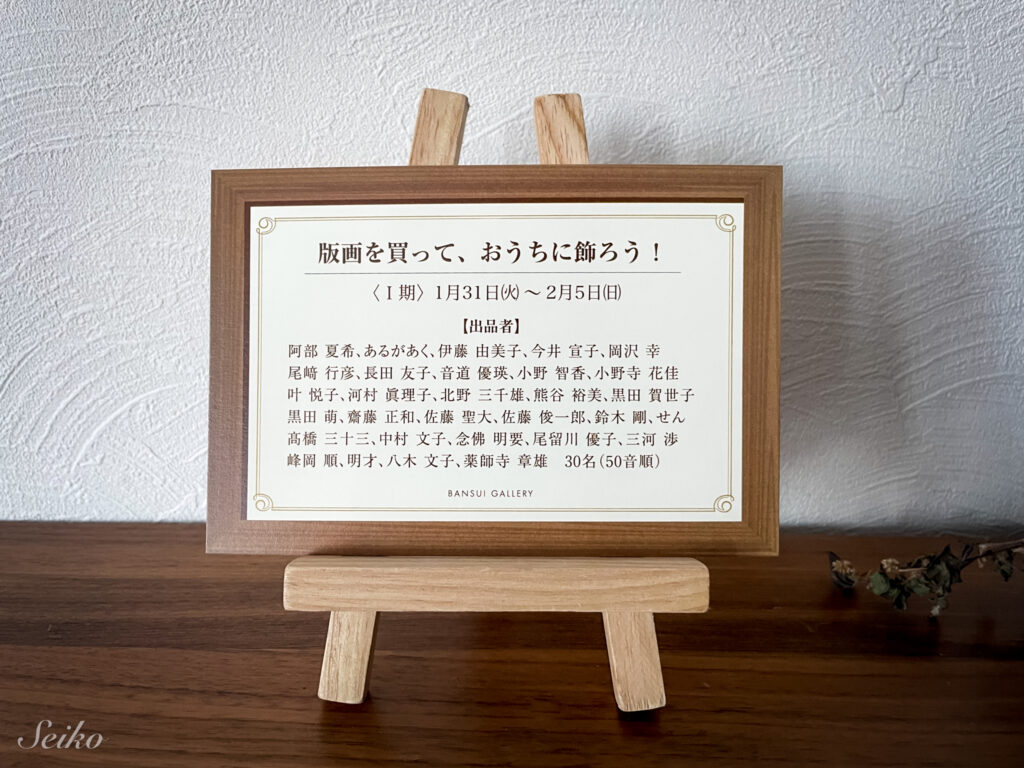 版画を買って、おうちに飾ろう！
〈Ⅰ期〉1月31日㈫～2月5日㈰
【出品者】
阿部 夏希、あるがあく、伊藤 由美子、今井 宣子、岡沢 幸
尾﨑 行彦、長田 友子、音道 優瑛、小野 智香、小野寺 花佳
叶 悦子、河村 眞理子、北野 三千雄、熊谷 裕美、黒田 賀世子
黒田 萌、齋藤 正和、佐藤 聖大、佐藤 俊一郎、鈴木 剛、せん
髙橋 三十三、中村 文子、念佛 明要、尾留川 優子、三河 渉
峰岡 順、明才、八木 文子、薬師寺 章雄　30名（50音順）
BANSUI GALLERY
Seiko